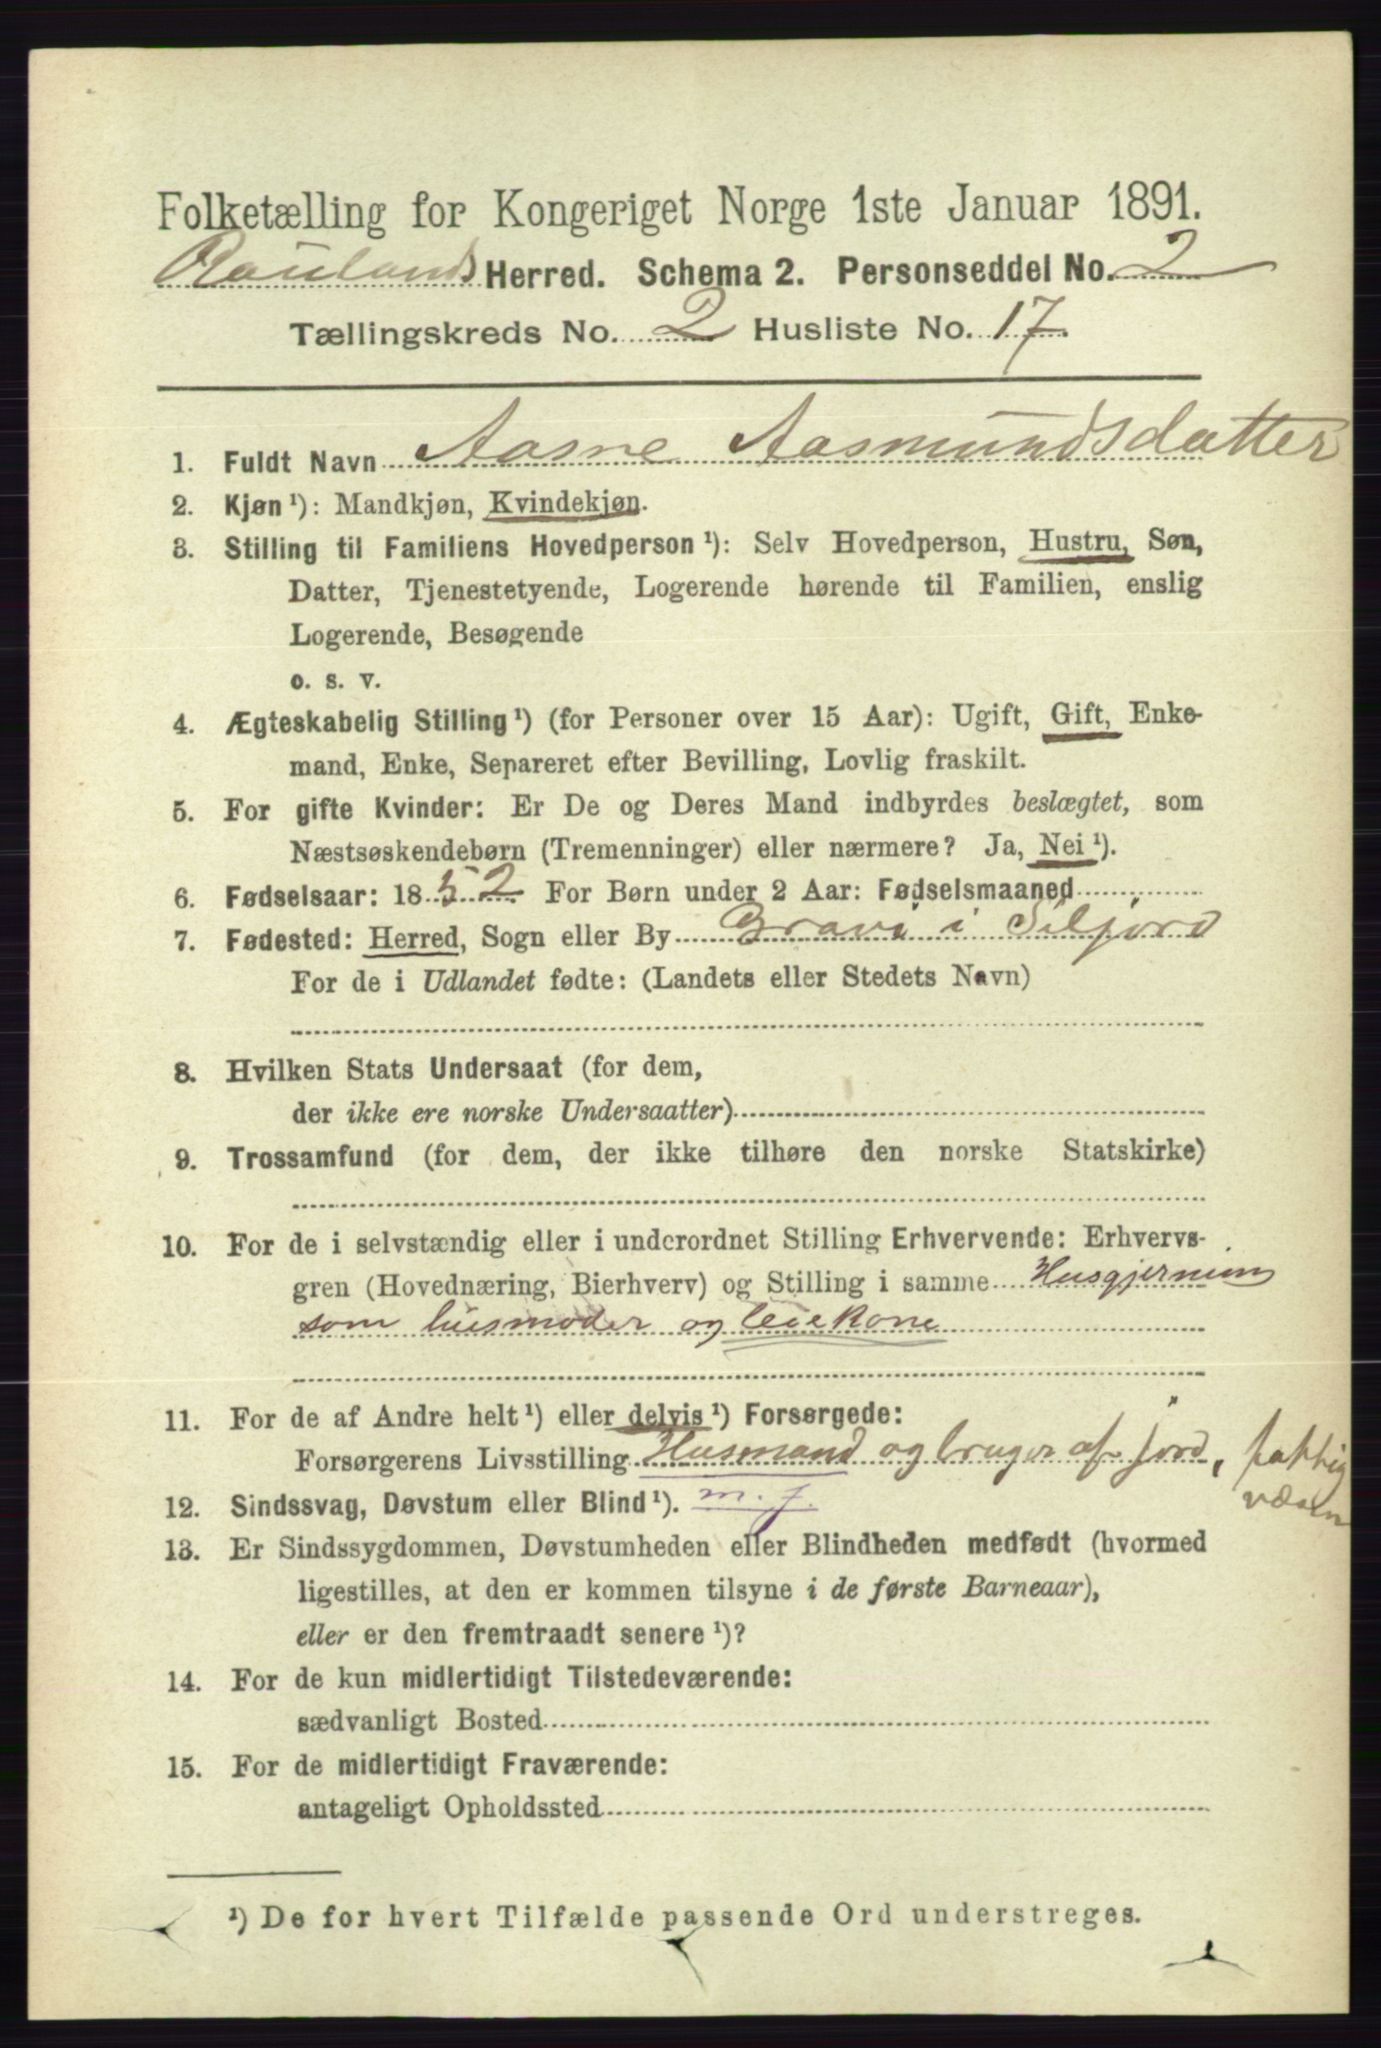 Folketælling for Kongeriget Norge 1ste Januar 1891.
Raulands Herred. Schema 2. Personseddel No. 2
Tællingskreds No. 2 Husliste No. 17.
1. Fuldt Navn Aasne Aasmundsdatter
2. Kjøn ¹): Mandkjøn, Kvindekjøn.
3. Stilling til Familiens Hovedperson ¹): Selv Hovedperson, Hustru, Søn,
Datter, Tjenestetyende, Logerende hørende til Familien, enslig
Logerende, Besøgende
o. s. v.
4. Ægteskabelig Stilling ¹) (for Personer over 15 Aar): Ugift, Gift, Enke-
mand, Enke, Separeret efter Bevilling, Lovlig fraskilt.
5. For gifte Kvinder: Er De og Deres Mand indbyrdes beslægtet, som
Næstsøskendebørn (Tremenninger) eller nærmere? Ja, Nei ¹).
6. Fødselsaar: 1852 For Børn under 2 Aar: Fødselsmaaned
7. Fødested: Herred, Sogn eller By Gravi i Siljord
For de i Udlandet fødte: (Landets eller Stedets Navn)
8. Hvilken Stats Undersaat (for dem,
der ikke ere norske Undersaatter)
9. Trossamfund (for dem, der ikke tilhøre den norske Statskirke)
10. For de i selvstændig eller i underordnet Stilling Erhvervende: Erhvervs-
gren (Hovednæring, Bierhverv) og Stilling i samme Husgjerning
som husmoder og leiekone
11. For de af Andre helt ¹) eller delvis ¹) Forsørgede:
Forsørgerens Livsstilling Husmand og bruger af jord, fattig
væsen
12. Sindssvag, Døvstum eller Blind ¹). m. f.
13. Er Sindssygdommen, Døvstumheden eller Blindheden medfødt (hvormed
ligestilles, at den er kommen tilsyne i de første Barneaar),
eller er den fremtraadt senere ¹)?
14. For de kun midlertidigt Tilstedeværende:
sædvanligt Bosted
15. For de midlertidigt Fraværende:
antageligt Opholdssted
¹) De for hvert Tilfælde passende Ord understreges.